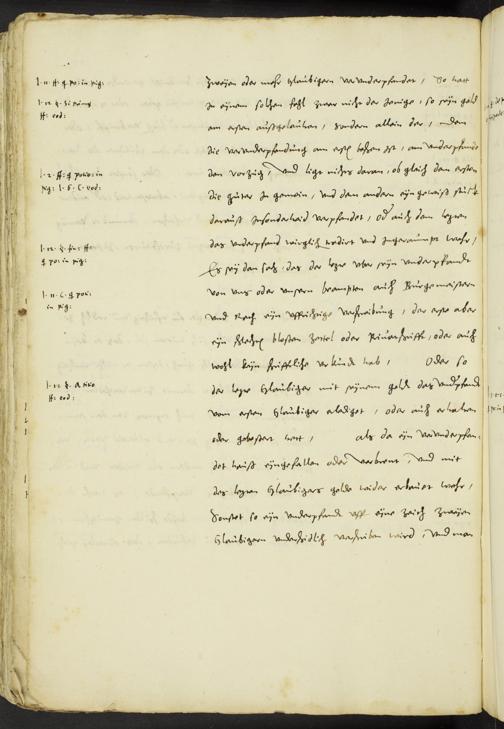 l. 11. ff. q po: in pig:
l. 12. §. si primus
ff: eod:
l. 2. ff: q potio: in
pig: l. 6. C. eod:
l. 12. §. fin: ff:
q po: in pig:
l. 11. C. q poti:
in pig:
l. 12. §. a
ff: eod:
zweyen oder mehr Glaubigern verunderpfendet, So hat
In eynem solchen fahl zwar nicht der Jenige, so seyn geld
am ersten außgelauhen, sondern allein der,
die verunderpfendung am ersten beschehen ist, am underpfand
den vorzug, Und ligt nichts daran, ob gleich dem ersten
die güter In gemein, und dem andern eyn gewiß stuck
darauß Insonderheid verpfendet, oder auch dem letzten
das underpfand würglich tradirt und Ingeraumpt were,
Es sey dan sach, das der letzt uber seyn underpfandt
von uns oder unsern beampten auch Burgermeistern
und Rath eyn uffrichtige verschreibung, der erst aber
eyn schlechten blossen zettel oder handschrifft, oder auch
wohl keyn schrifftliche urkund hab, Oder so
der letzt Glaubiger mit seynem geldt das underpfand
vom ersten Glaubiger erlediget, oder auch erhalten
oder gebessert hett, als da eyn verunderpfen-
det hauß eyngefallen oder verbrent, und mit
des letzten Glaubigers geldt wider erbauet were,
Sonsten so eyn underpfand uff eyne zeit zweyen
Glaubigern underschidlich verschriben wird, und man